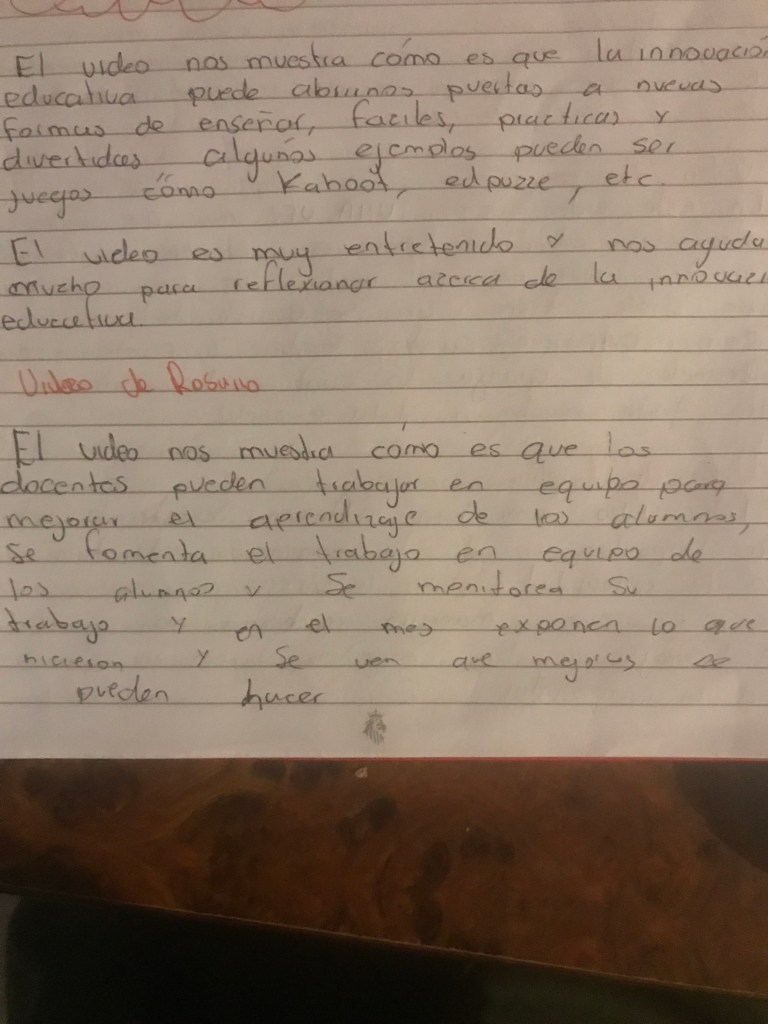 El video nos muestra cómo es que la innovación
educativa puede abrirnos puertas a nuevas
formas de enseñar, faciles, practicas y
divertidas algunos ejemplos pueden ser
juegos cómo Kahoot, edpuzze, etc.
El video es muy entretenido y nos ayuda
mucho para reflexionar acerca de la innovaci
educativa.
Video de Rosario
El video nos muestra cómo es que los
docentes pueden trabajar en equipo para
mejorar el aprendizaje de los alumnos,
se fomenta el trabajo en equipo de
los alumnos y se monitorea su
trabajo y en el mes exponen lo que
hicieron y se ven que mejoras se
pueden hacer